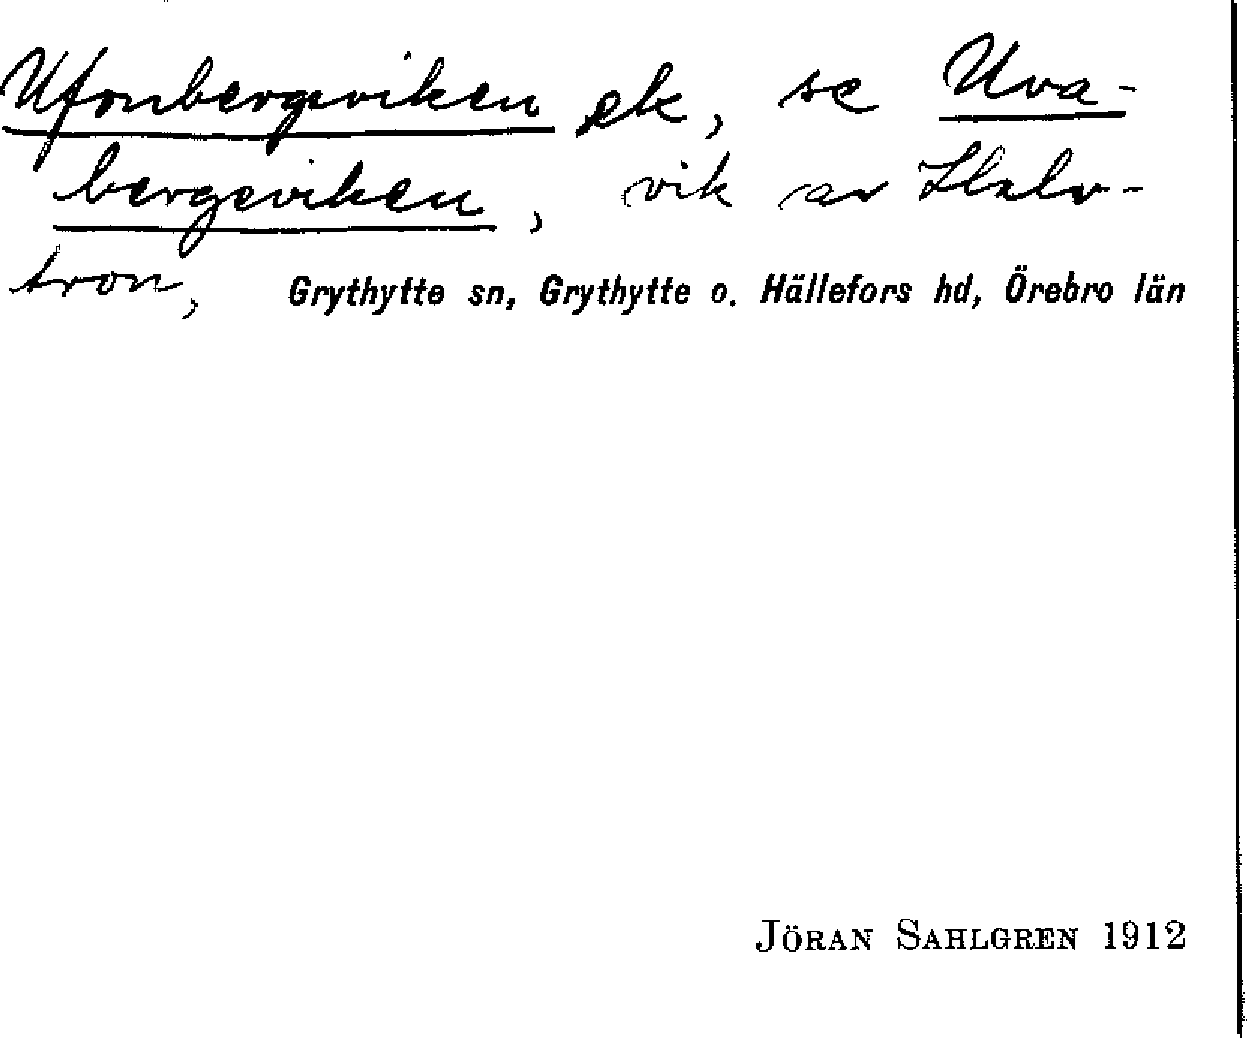 Ufonbergsviken ek, se Uva-
bergsviken, vik av Halv-
tron, Grythytte sn, Grythytte o. Hällefors hd, Örebro län
JÖRAN SAHLGREN 1912